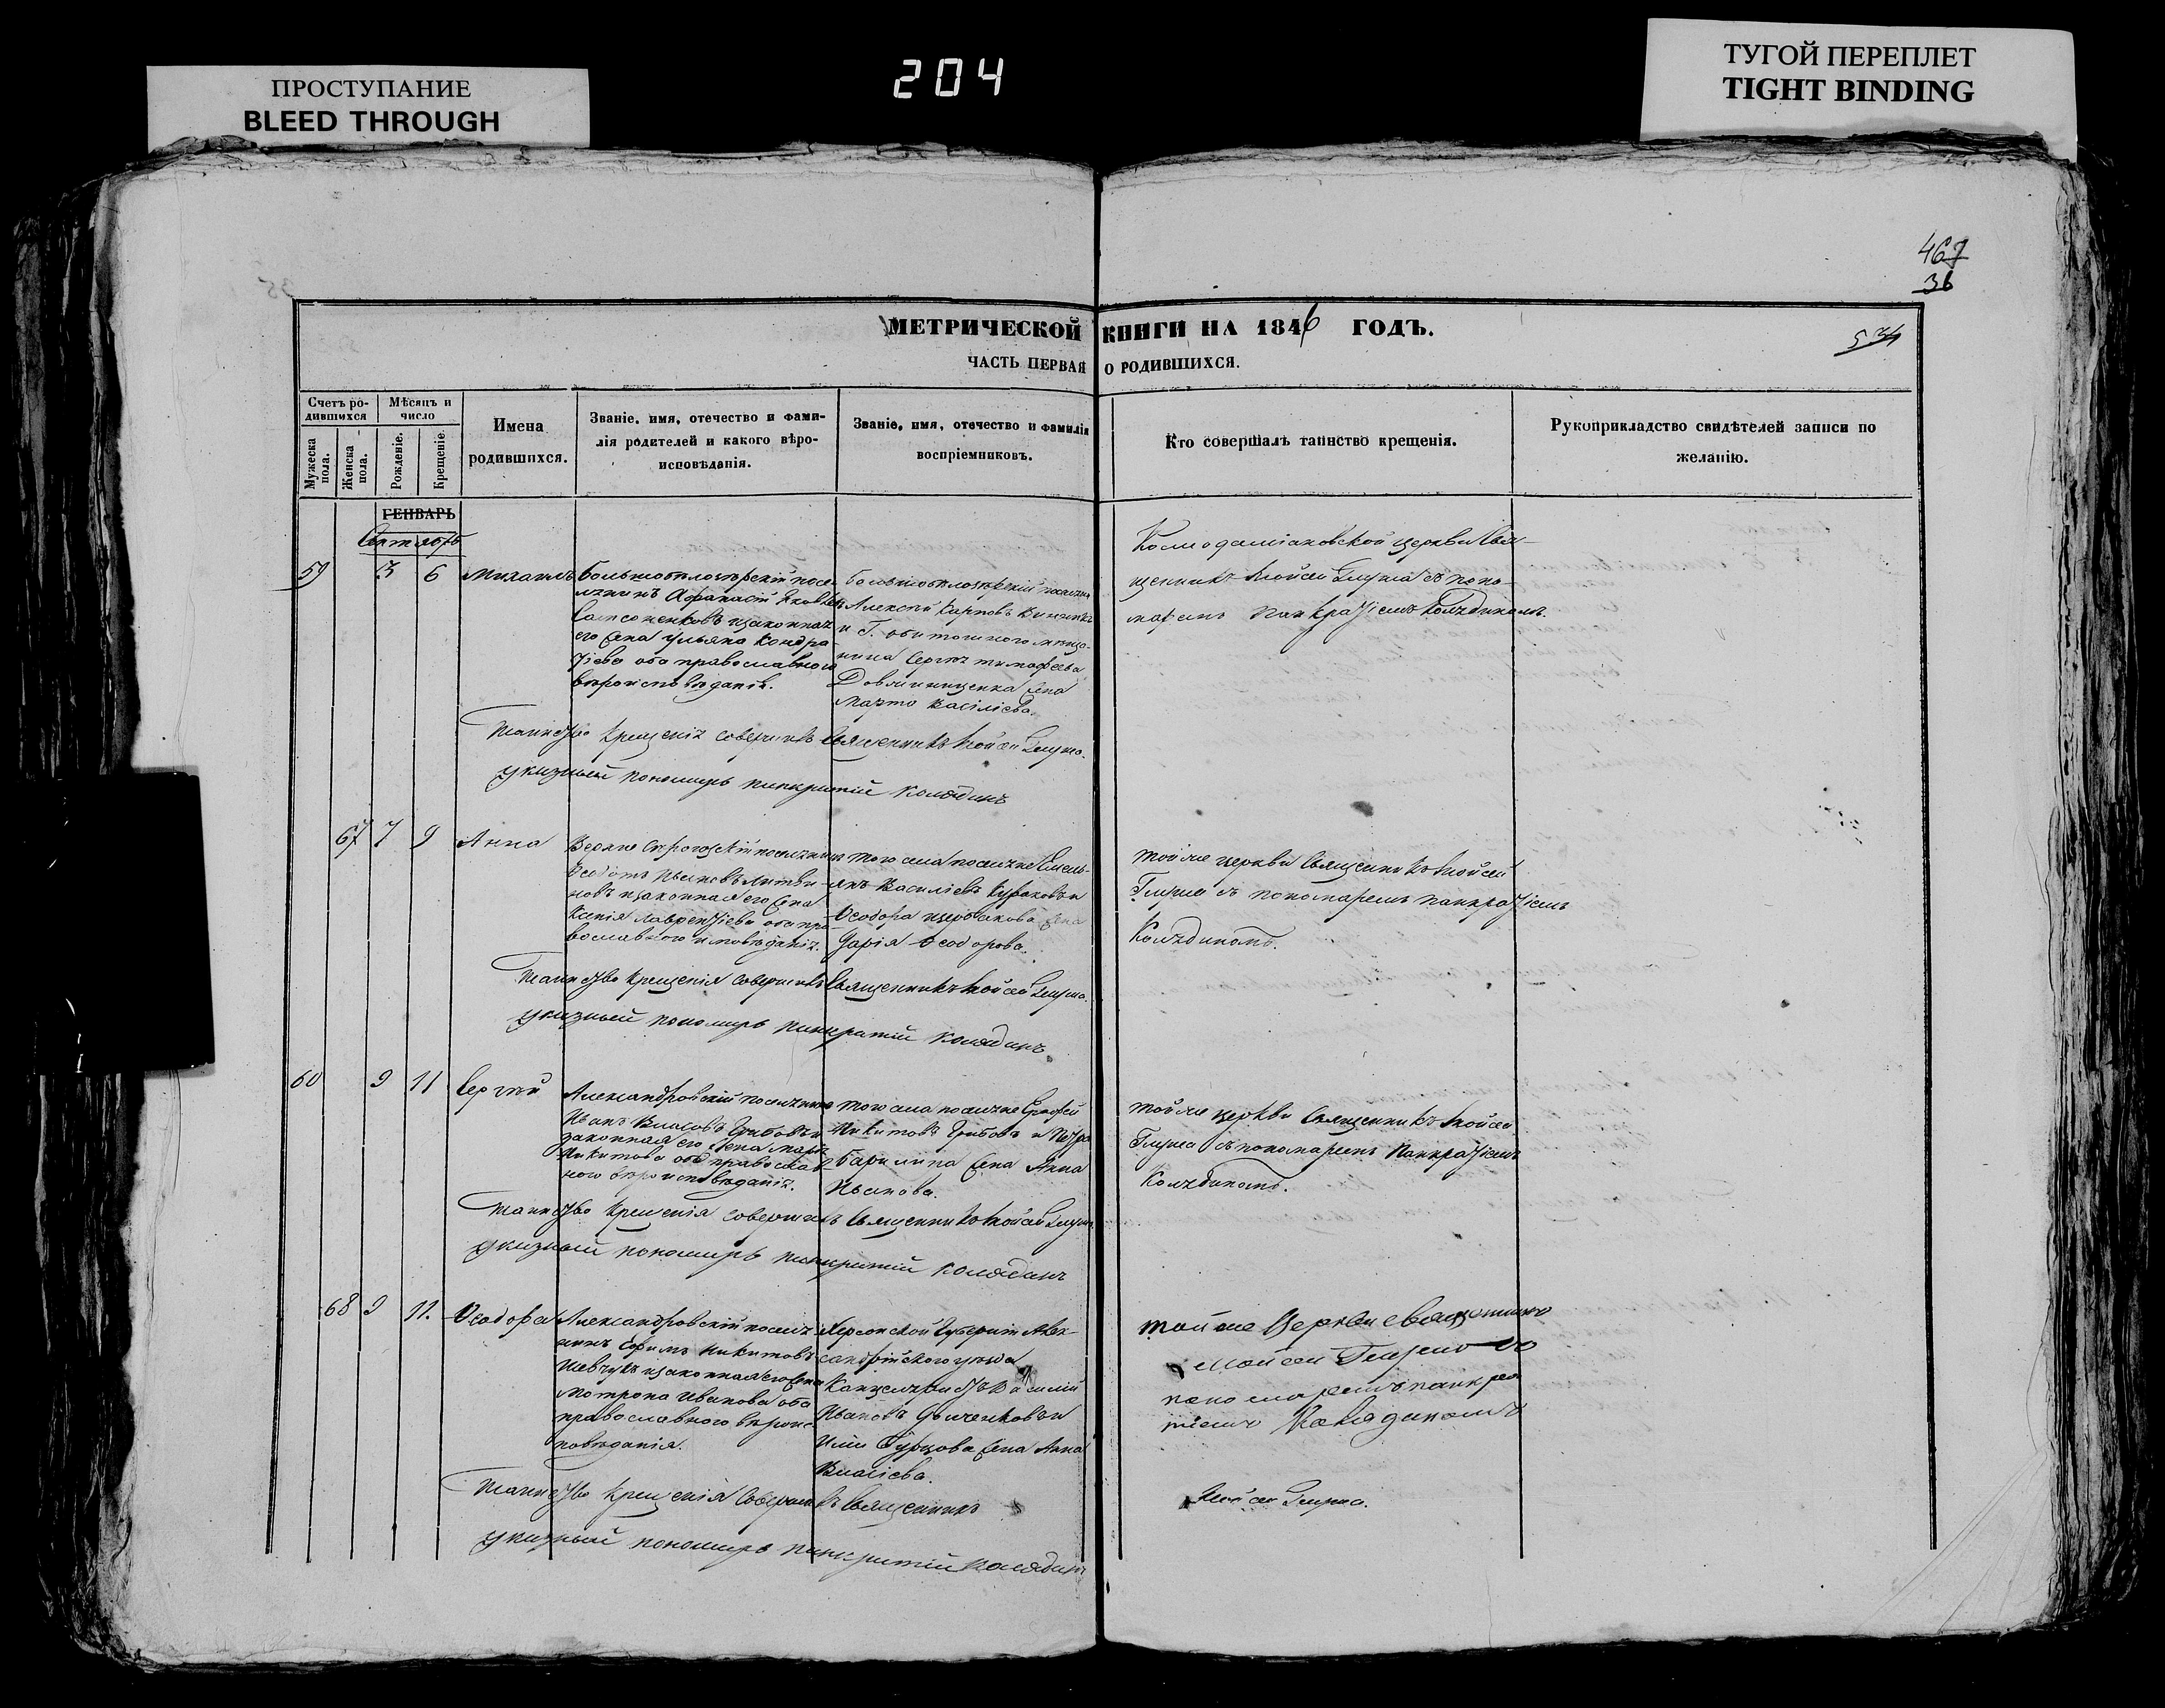 ПРОСТУПАНИЕ
BLEED THROUGH
204
ТУГОЙ ПЕРЕПЛЕТ
TIGHT BINDING
467
36
МЕТРИЧЕСКОЙ КНИГИ НА 1846 ГОДЪ.
ЧАСТЬ ПЕРВАЯ О РОДИВШИХСЯ.
Счетъ ро-
дившихся
Мужеска
пола.
Женска
пола.
Мѣсяцъ и
число
Рожденіе.
Крещеніе.
Имена
родившихся.
Званіе, имя, отечество и фами-
лія родителей и какого вѣро-
исповѣданія.
Званіе, имя, отечество и фамилія
воспріемниковъ.
Кто совершалъ таинство крещенія.
Рукоприкладство свидѣтелей записи по
желанію.
ГЕНВАРЬ
Сентябрь
59 3 6 Михаилъ
Большобѣлозѣрскій посе-
лянинъ Афанасій Яковлевъ
Самсоненковъ и законная
его жена Ульяна Кондра-
тіева оба православнаго
вѣроисповѣданія.
Большобѣлозѣрскій поселянинъ
Алексѣй Карповъ
и Г. мѣща-
нина Сергѣя Тимофеева
жена
Марѳа Василіева.
Космодаміановской церкви Свя-
щенникъ Мойсей Глума съ поно-
маремъ Панкратіемъ Колядиномъ.
Таинство крещенія совершилъ Священникъ Мойсей Глума.
Указный пономарь Панкратій Колядинъ
67 7 9 Анна
Верхне Сѣрогозскій поселянинъ
Ѳедотъ Ивановъ Литви-
новъ и законная его жена
Ксенія Лаврентіева оба пра-
вославнаго исповѣданія.
того села поселяне Емель-
янъ Василіевъ и
Ѳеодора жена
Дарія Ѳеодорова.
той же церкви Священникъ Мойсей
Глума съ пономаремъ Панкратіемъ
Колядиномъ.
Таинство крещенія совершилъ Священникъ Мойсей Глума.
Указный пономарь Панкратій Колядинъ
60 9 11 Сергѣй
Александровскій поселянинъ
Иванъ Власовъ Грибовъ и
законная его жена
Никитова оба православ-
наго вѣроисповѣданія.
того села поселяне
Никитовъ Грибовъ и Петра
жена Анна
Иванова.
той же церкви Священникъ Мойсей
Глума съ пономаремъ Панкратіемъ
Колядиномъ.
Таинство крещенія совершилъ Священникъ Мойсей Глума
Указный пономарь Панкратій Колядинъ
68 9 11. Ѳеодора
Александровскій поселя-
нинъ Ефимъ Никитовъ
Шевчукъ и законная его жена
Мотрона Иванова оба
православнаго вѣроис-
повѣданія.
Херсонской Губерніи Алек-
сандрійскаго уѣзда
Канцеляристъ Василій
Ивановъ и
жена Анна
Власіева.
той же Церкви Священникъ
Мойсей Глума съ
пономаремъ Панкра-
тіемъ Колядиномъ
Таинство крещенія совершилъ Священникъ Мойсей Глума.
Указный пономарь Панкратій Колядинъ